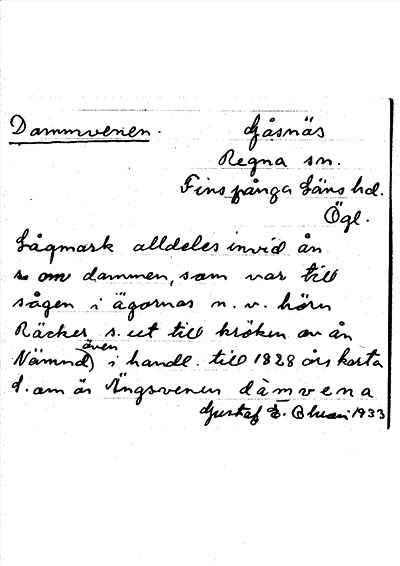 Dammvenen.
Gåsnäs
Regna sn.
Finspånga läns hd.
Ögl.
Lågmark alldeles invid ån
s. om dammen, som var till
sågen i ägornas n. v. hörn
Räcker s. ut till kröken av ån
Nämnd (även) i handl. till 1828 års karta
d. om äs Ängsvenen dàmvena
Gustaf E. 1933